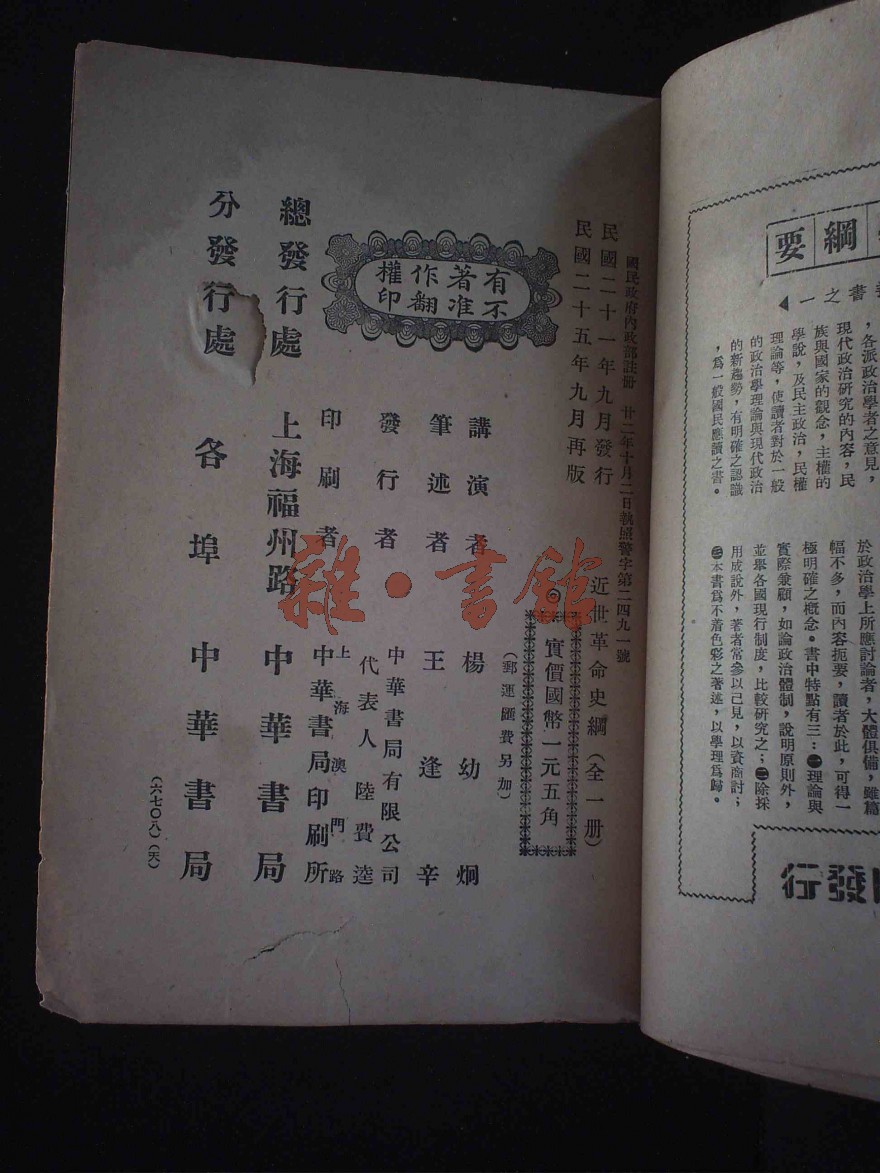 國民政府內政部註冊 廿二年十月二日執照警字第二四九一號
民國二十一年九月發行
民國二十五年九月再版
有著作權
不准翻印
近世革命史綱(全一冊)
◎實價國幣一元五角
(郵運匯費另加)
講演者 楊幼炯
筆述者 王逢辛
發行者 中華書局有限公司
代表人 陸費逵
印刷者 上海澳門路
中華書局印刷所
總發行處 上海福州路 中華書局
分發行處 各埠 中華書局
(六七〇八)(天)
雜·書館
綱要
書之一◀
各派政治學者之意見,
現代政治研究的內容,民
族與國家的觀念,主權的
學說,及民主政治,民權
理論等,使讀者對於一般
的政治學理論與現代政治
的新趨勢,有明確之認識
,爲一般國民應讀之書。
於政治學上所應討論者,大體俱備,雖篇
幅不多,而內容扼要,讀者於此,可得一
極明確之概念。書中特點有三:㊀理論與
實際兼顧,如論政治體制,說明原則外,
並舉各國現行制度,比較研究之;㊁除採
用成說外,著者常參以己見,以資商討;
㊂本書爲不着色彩之著述,以學理爲歸。
發行